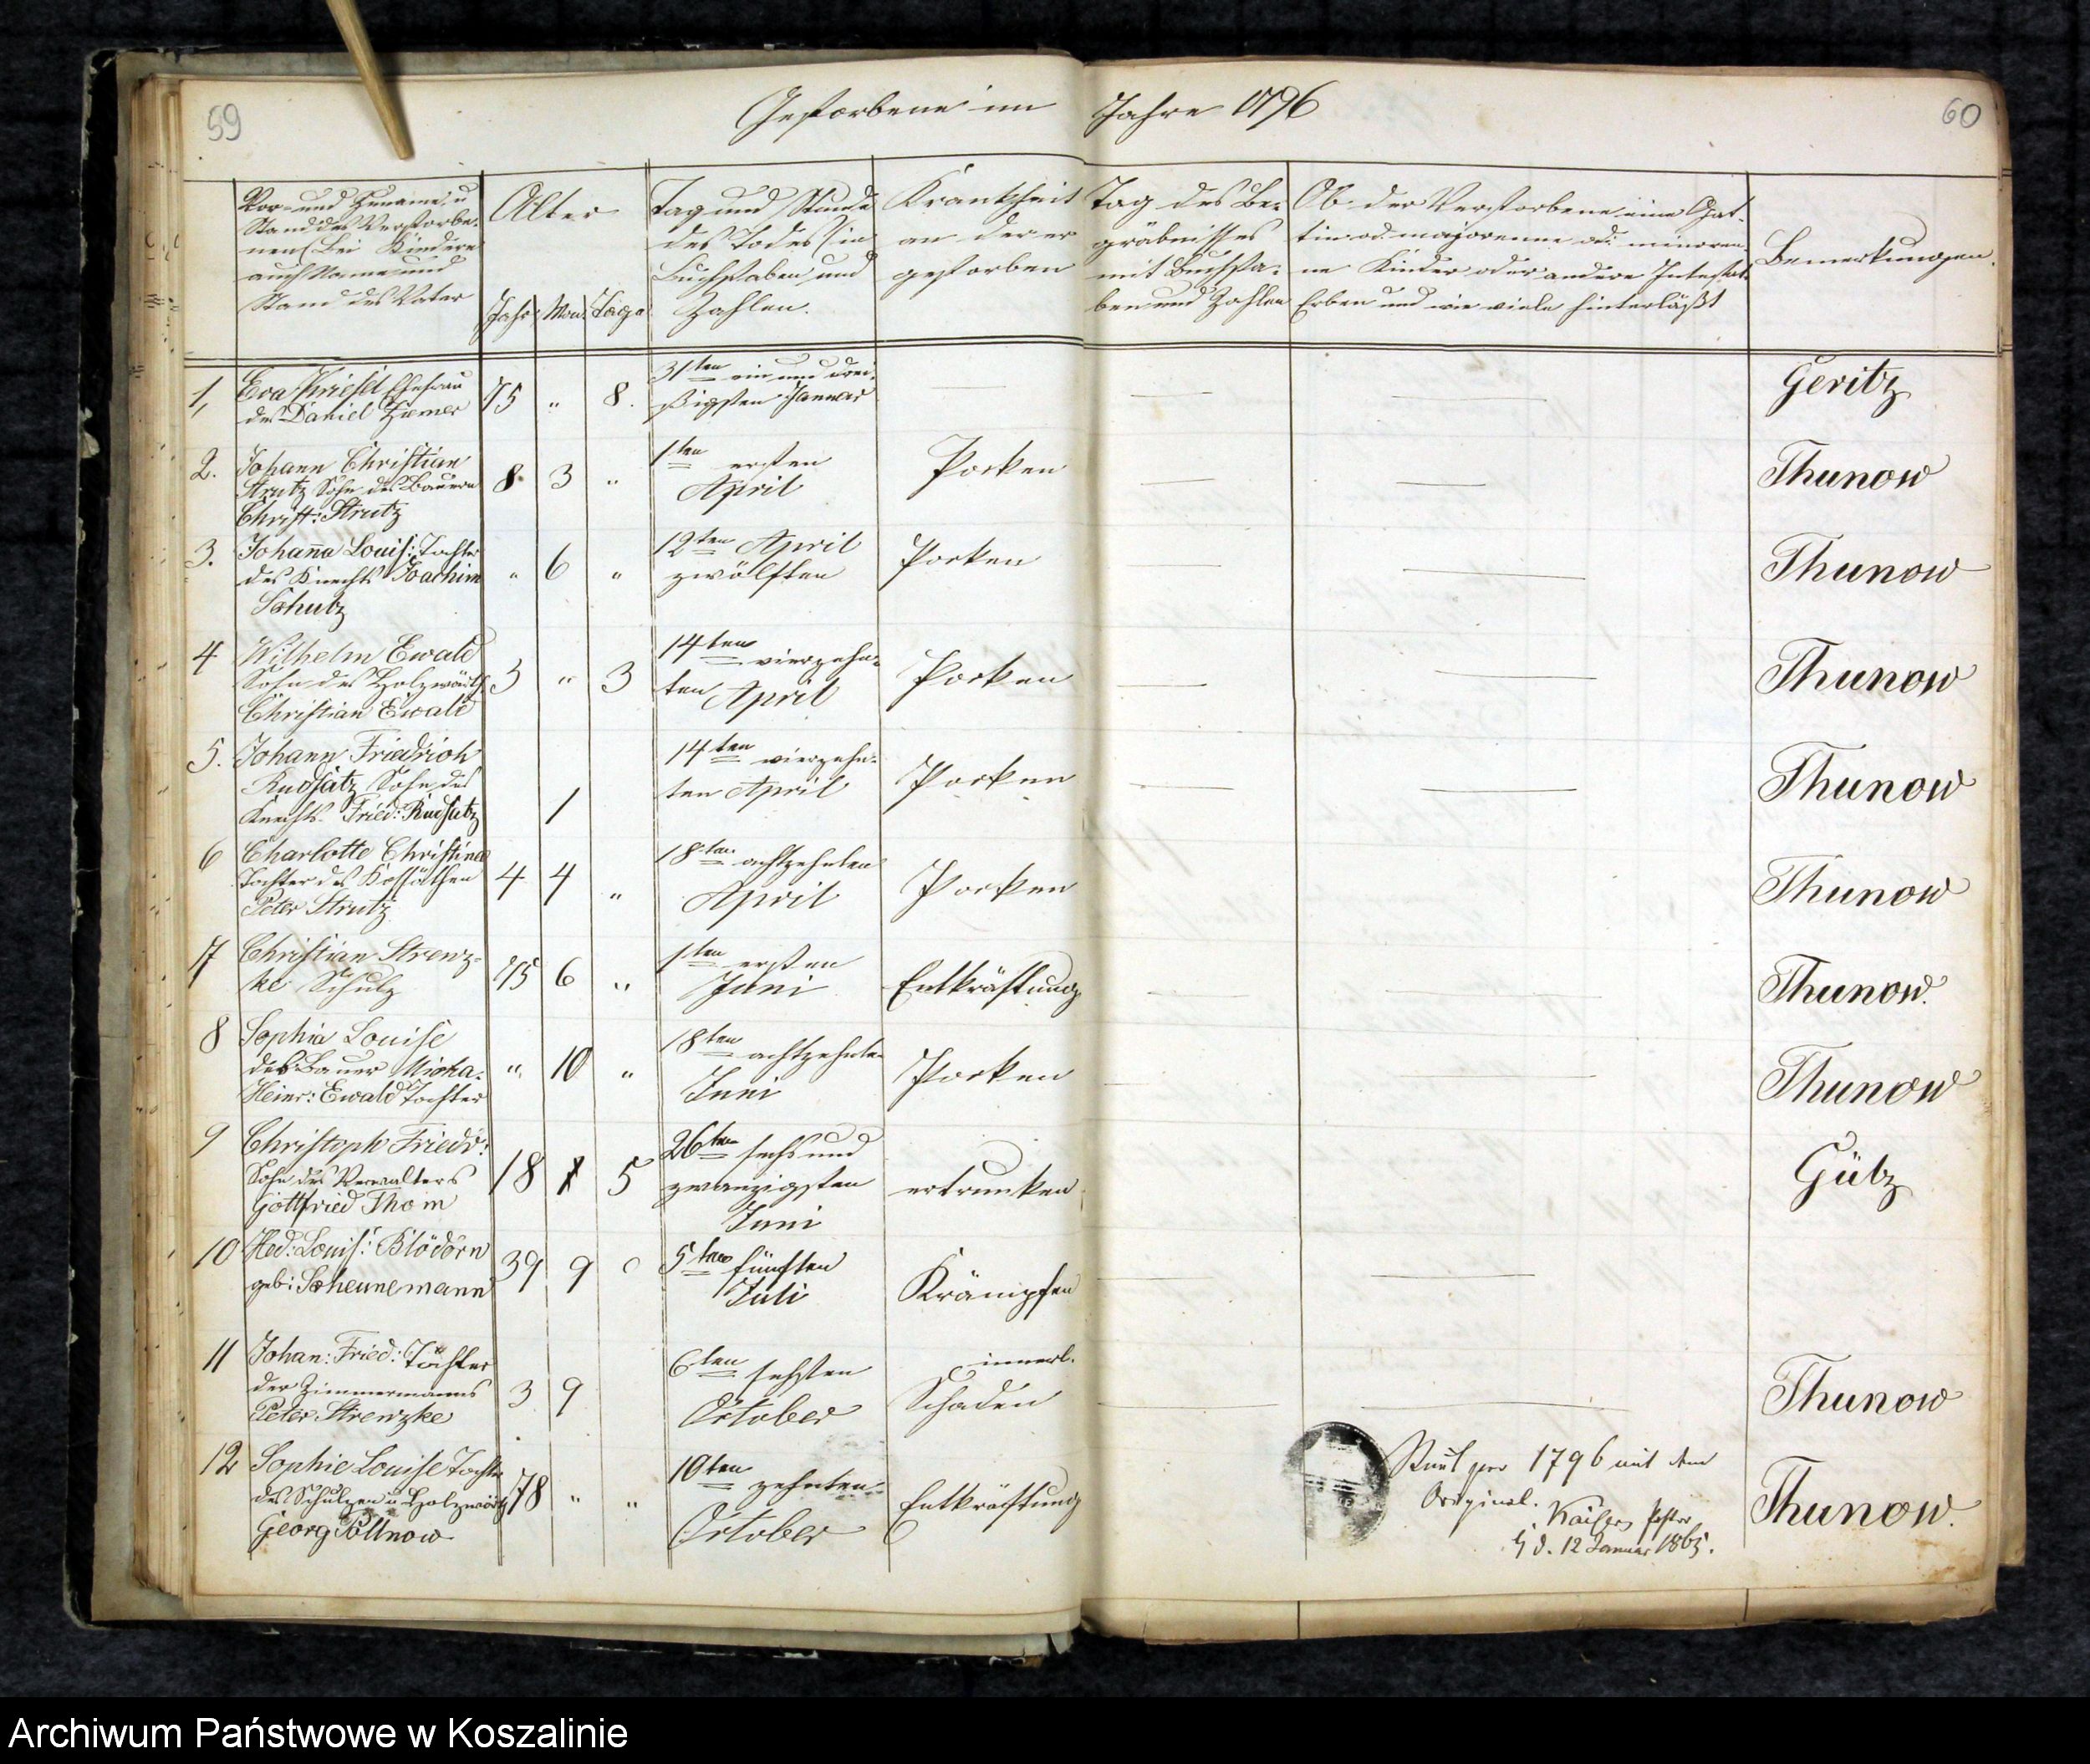 59
Gestorbene im Jahre 1796
60
Vor- und Zuname, u
Stand des Verstorbe-
nen (bei Kindern
auch Name und
Stand des Vater
Alter
Jahr. Mon. Tage
Tag und Stunde
des Todes (in
Buchstaben und
Zahlen.
Krankheit
an der er
gestorben
Tag des Be-
gräbnisses
mit Buchsta-
ben und Zahlen
Ob der Verstorbene eine Gat-
tin od. majorenne od. minoren-
ne Kinder oder andere Intestat
Erben und wie viele hinterläßt
Bemerkungen.
1,
Eva Ehefrau
des Daniel
75 " 8.
31ten ein und drei-
ßigsten Januar
Geritz
2.
Johann Christian
Strutz Sohn des Bauern
Christ: Strutz
8 3 "
1ten ersten
April
Pocken
Thunow
3.
Johaña Louis: Tochter
des Knechts Joachim
Schutz
" 6 "
12ten April
zwölften
Pocken
Thunow
4
Wilhelm Ewald
Sohn des Holzwärth
Christian Ewald
3 " 3
14ten vierzehn-
ten April
Pocken
Thunow
5.
Johann Friedrich
Rudsatz Sohn des
Knechts Fried: Rudsatz
1
14ten vierzehn-
ten April
Pocken
Thunow
6
Charlotte Christine
Tochter des Kossäthen
Peter Strutz
4 4 "
18ten achtzehnten
April
Pocken
Thunow
7
Christian Strenz-
ke Schulz
75 6 "
1ten ersten
Juni
Entkräftung
Thunow.
8
Sophia Louise
des Bauer Micha.
Heinr: Ewald Tochter
" 10 "
18ten achtzehnten
Juni
Pocken
Thunow
9
Christoph Friedr:
Sohn des Verwalters
Gottfried Thom
18 1 5
26ten sechs und
zwanzigsten
Juni
ertrunken
Gütz
10
Hed: Louis: Blödorn
geb: Scheunemann
39 9
5ten fünften
Juli
Krämpfen
11
Johan: Fried: Tochter
des Zimmermanns
Peter Strenzke
3 9
6ten sechsten
October
innerl.
Schaden
Thunow
12
Sophie Louise Tochter
des Schulzen u Holzwärth
Georg Pollnow
78 " "
10ten zehnten
October
Entkräftung
Thunow.
1796 mit dem
Original.
Kaiser Pastor
d. 12 Januar 1865.
Archiwum Państwowe w Koszalinie